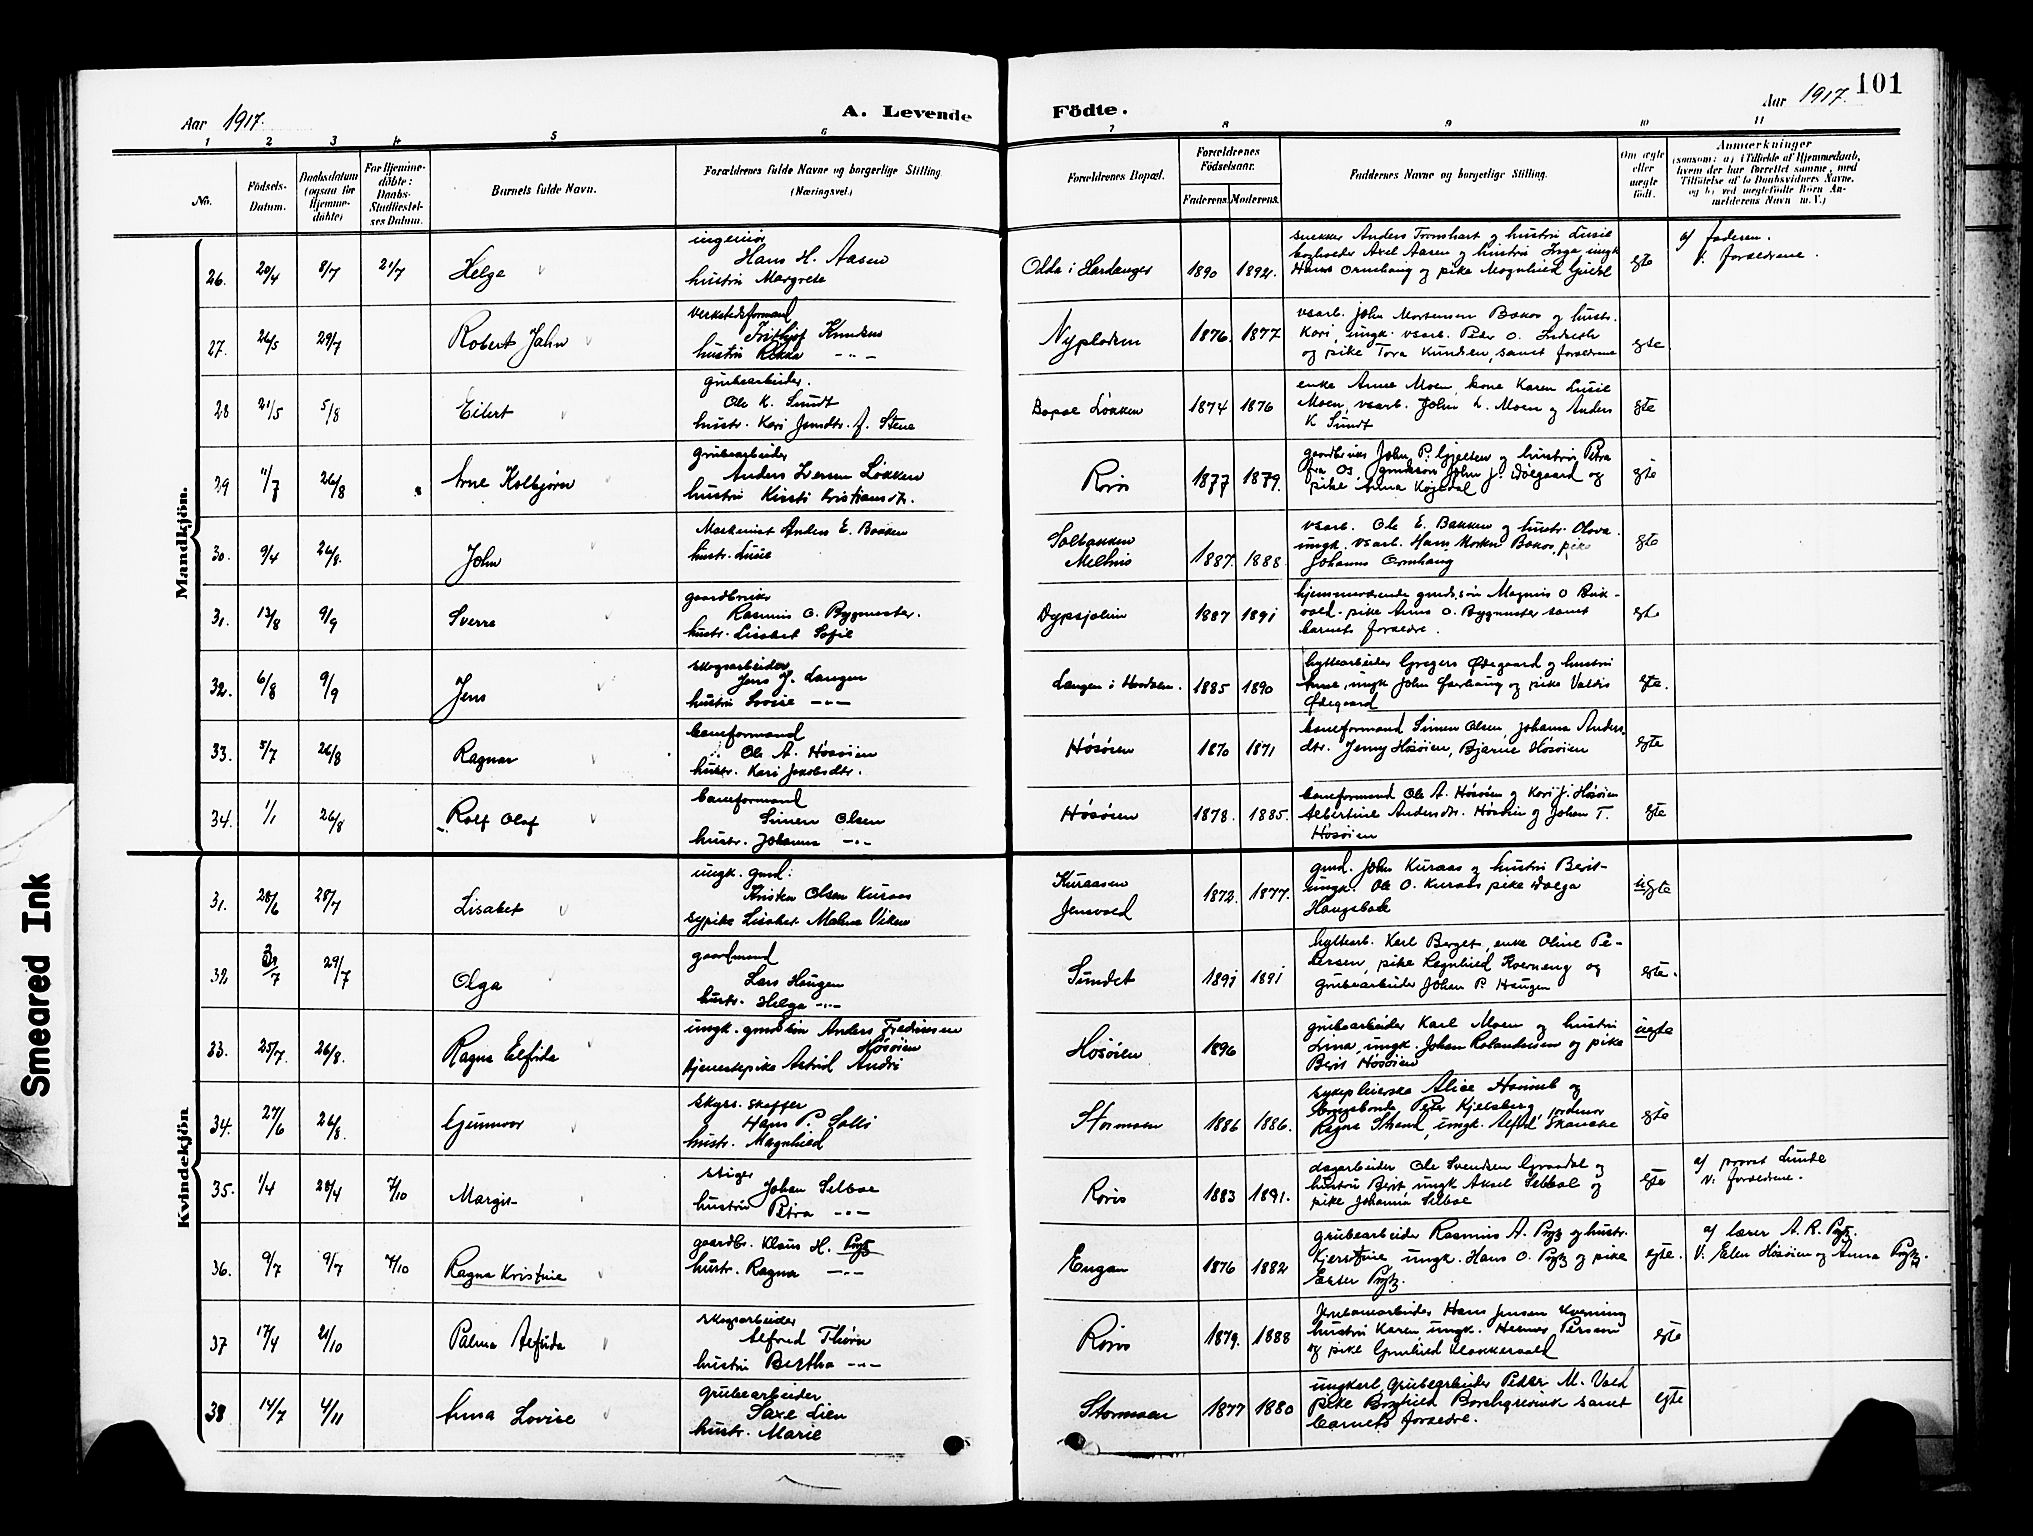 101
Aar 1917.
A. Levende
Födte.
Aar 1917.
1 2 3 4 5 6 7 8 9 10 11
No.
Födsels-
Datum.
Daabsdatum
(ogsaa for
Hjemme-
døbte)
For Hjemme-
døbte:
Daabs-
Stadfæstel-
ses Datum.
Barnets fulde Navn.
Forældrenes fulde Navne og borgerlige Stilling
(Næringsvei.)
Forældrenes Bopæl.
Forældrenes
Födselsaar.
Faderens. Moderens.
Faddernes Navne og borgerlige Stilling.
Om ægte
eller
uægte
født.
Anmærkninger
(saasom: a) i Tilfælde af Hjemmedaab,
hvem der har forrettet samme, med
Tilføielse af to Daabsvidners Navne,
og b) ved uægtefødte Børn An-
melderens Navn m. V.)
Mandkjön.
26. 20/4 8/7 21/7 Helge
ingeniør
Hans H. Aasen
hustru Margrete
Odda i Hardanger 1890 1892.
snekker Anders Tronshart og hustru Lusie
bogholder Axel Aasen og hustru Inga ungk
Hans Ormhaug og pike Magnhild
egte
af faderen.
v. forældrene.
27. 26/5 29/7 Robert Jahn
verkstedsformand
Frithjof Knudsen
hustru Rikka -"-
Nyplassen 1876. 1877
vsarb. John Mortensen Bakos og hustr.
Kari, ungk. vsarb. Peter O.
og pike Tora Knudsen, samt forældrene
egte
28 21/5 5/8 Eilert
grubearbeider.
Ole K. Sundt
hustr. Kari Jonsdtr. f. Stene
Bopæl Løkken 1874 1876
enke Anne Moen, kone Karen Lusie
Moen, vsarb. John L. Moen og Anders
K Sundt
egte
29 11/7 26/8 Arne Kolbjørn
grubearbeider
Anders Larsen Løkken
hustru Kirsti Kristiansdtr.
Røros 1877 1879.
gaardbruker John P. Gjelten og hustru Petra
fra Os, gmdssøn John J. Dølgaard og
pike Anna
egte
30. 9/4 26/8. John
Maskinist Anders E. Bakken
hustr. Lusie
Solbakken
Melhus
1887. 1888
vsarb. Ole E. Bakken og hustr. Olava
ungk. vsarb. Hans Morten Bakos, pike
Johanna Ormhaug
egte
31. 13/8 9/9 Sverre
gaardbruker
Rasmus O. Bygmester.
hustr. Lisabet Sofie
Dypsjølien 1887 1891
hjemmeværende gmds.søn Magnus O Buk-
vold. pike Anna O. Bygmester samt
barnets forældre.
egte
32. 6/8 9/9 Jens
skogsarbeider
Jens J. Langen
hustru Lovise -"-
Langen i 1885 1890
hyttearbeider Gregers Ødegaard og hustru
Anne, ungk John og pike Valdis
Ødegaard
egte.
33. 5/7 26/8 Ragnar
baneformand
Ole A. Høsøien
hustr. Kari Jakobsdtr.
Høsøien 1870 1871
baneformand Simen Olsen, Johanna Anders
dtr. Jenny Høsøien, Bjarne Høsøien
egte
34. 1/1 26/8 Rolf Olaf
baneformand
Simen Olsen
hustr. Johanna -"-
Høsøien 1878. 1885.
baneformand Ole A. Høsøien og Kari J. Høsøien
Albertine Andersdtr. Høsøien og Johan T.
Høsøien
egte
Kvindekjön
31. 28/6 28/7 Lisabet
ungk. gmd.
Olsen Kuraas
sypike Lisabet Malena Viken
Kuraasen
Jensvold
1872. 1877.
gmd. John Kuraas og hustru Berit-
ungk. Ole O. Kuraas pike
Haugsbak
uegte
32 29/7 Olga
gaardmand
Lars Haugen
hustr. Helga -"-
Sundet 1891 1891
hyttearb. Karl Berget, enke Oline Pe-
tersen, pike Ragnhild Kverneng og
grubearbeider Johan P. Haugen
egte.
33. 25/7. 26/8. Ragna Elfrida
ungk. gmdssøn Anders Fredriksen
Høsøien
tjenestepike Astrid
Høsøien 1896
grubearbeider Karl Moen og hustru
Lina, ungk. Johan Rolandsen og pike
Berit Høsøien
uegte
34. 27/6 26/8. Gunnvor
skyss.skaffer
Hans P. Solli
hustr. Magnhild
Stormoen 1886 1886.
sykepleierske Alice
Peter Kjelsberg, jordmor
Ragna Strand, ungk. Alfred Skancke
egte
35. 1/4 28/4 7/10 Margit
stiger
Johan Selboe
hustru Petra -"-
Røros 1883 1891.
dagarbeider Ole Svendsen Graadal og
hustru Berit ungk Aksel Selboe og
pike Johanna Selboe
egte
af provst Lunde
v. forældrene.
36. 9/7 9/7 7/10 Ragna Kristine
gaardbr. Klaus H. Prytz
hustr. Ragna -"-
Engan 1876 1882
grubearbeider Rasmus A. Prytz og hustr.
Kjerstine ungk. Hans O. Prytz og pike
Ester Prytz.
egte.
af lærer A. R. Prytz.
v. Elen Høsøien og Anna Prytz.
37 17/4 21/10 Palma Alfrida
skogsarbeider
Alfred Thorin
hustru Bertha -"-
Røros 1879. 1888
Hans Jensen Kverneng
hustru Karen, ungk. Person
og pike Gunhild Klokkervold
egte
38 14/7 4/11 Anna Lovise
grubearbeider
Saxe Lien
hustr. Marie
Stormoen 1877 1880
ungkarl, grubearbeider Peder M. Vold
pike Borghild Borchgrevink samt
barnets forældre.
egte
Smeared Ink